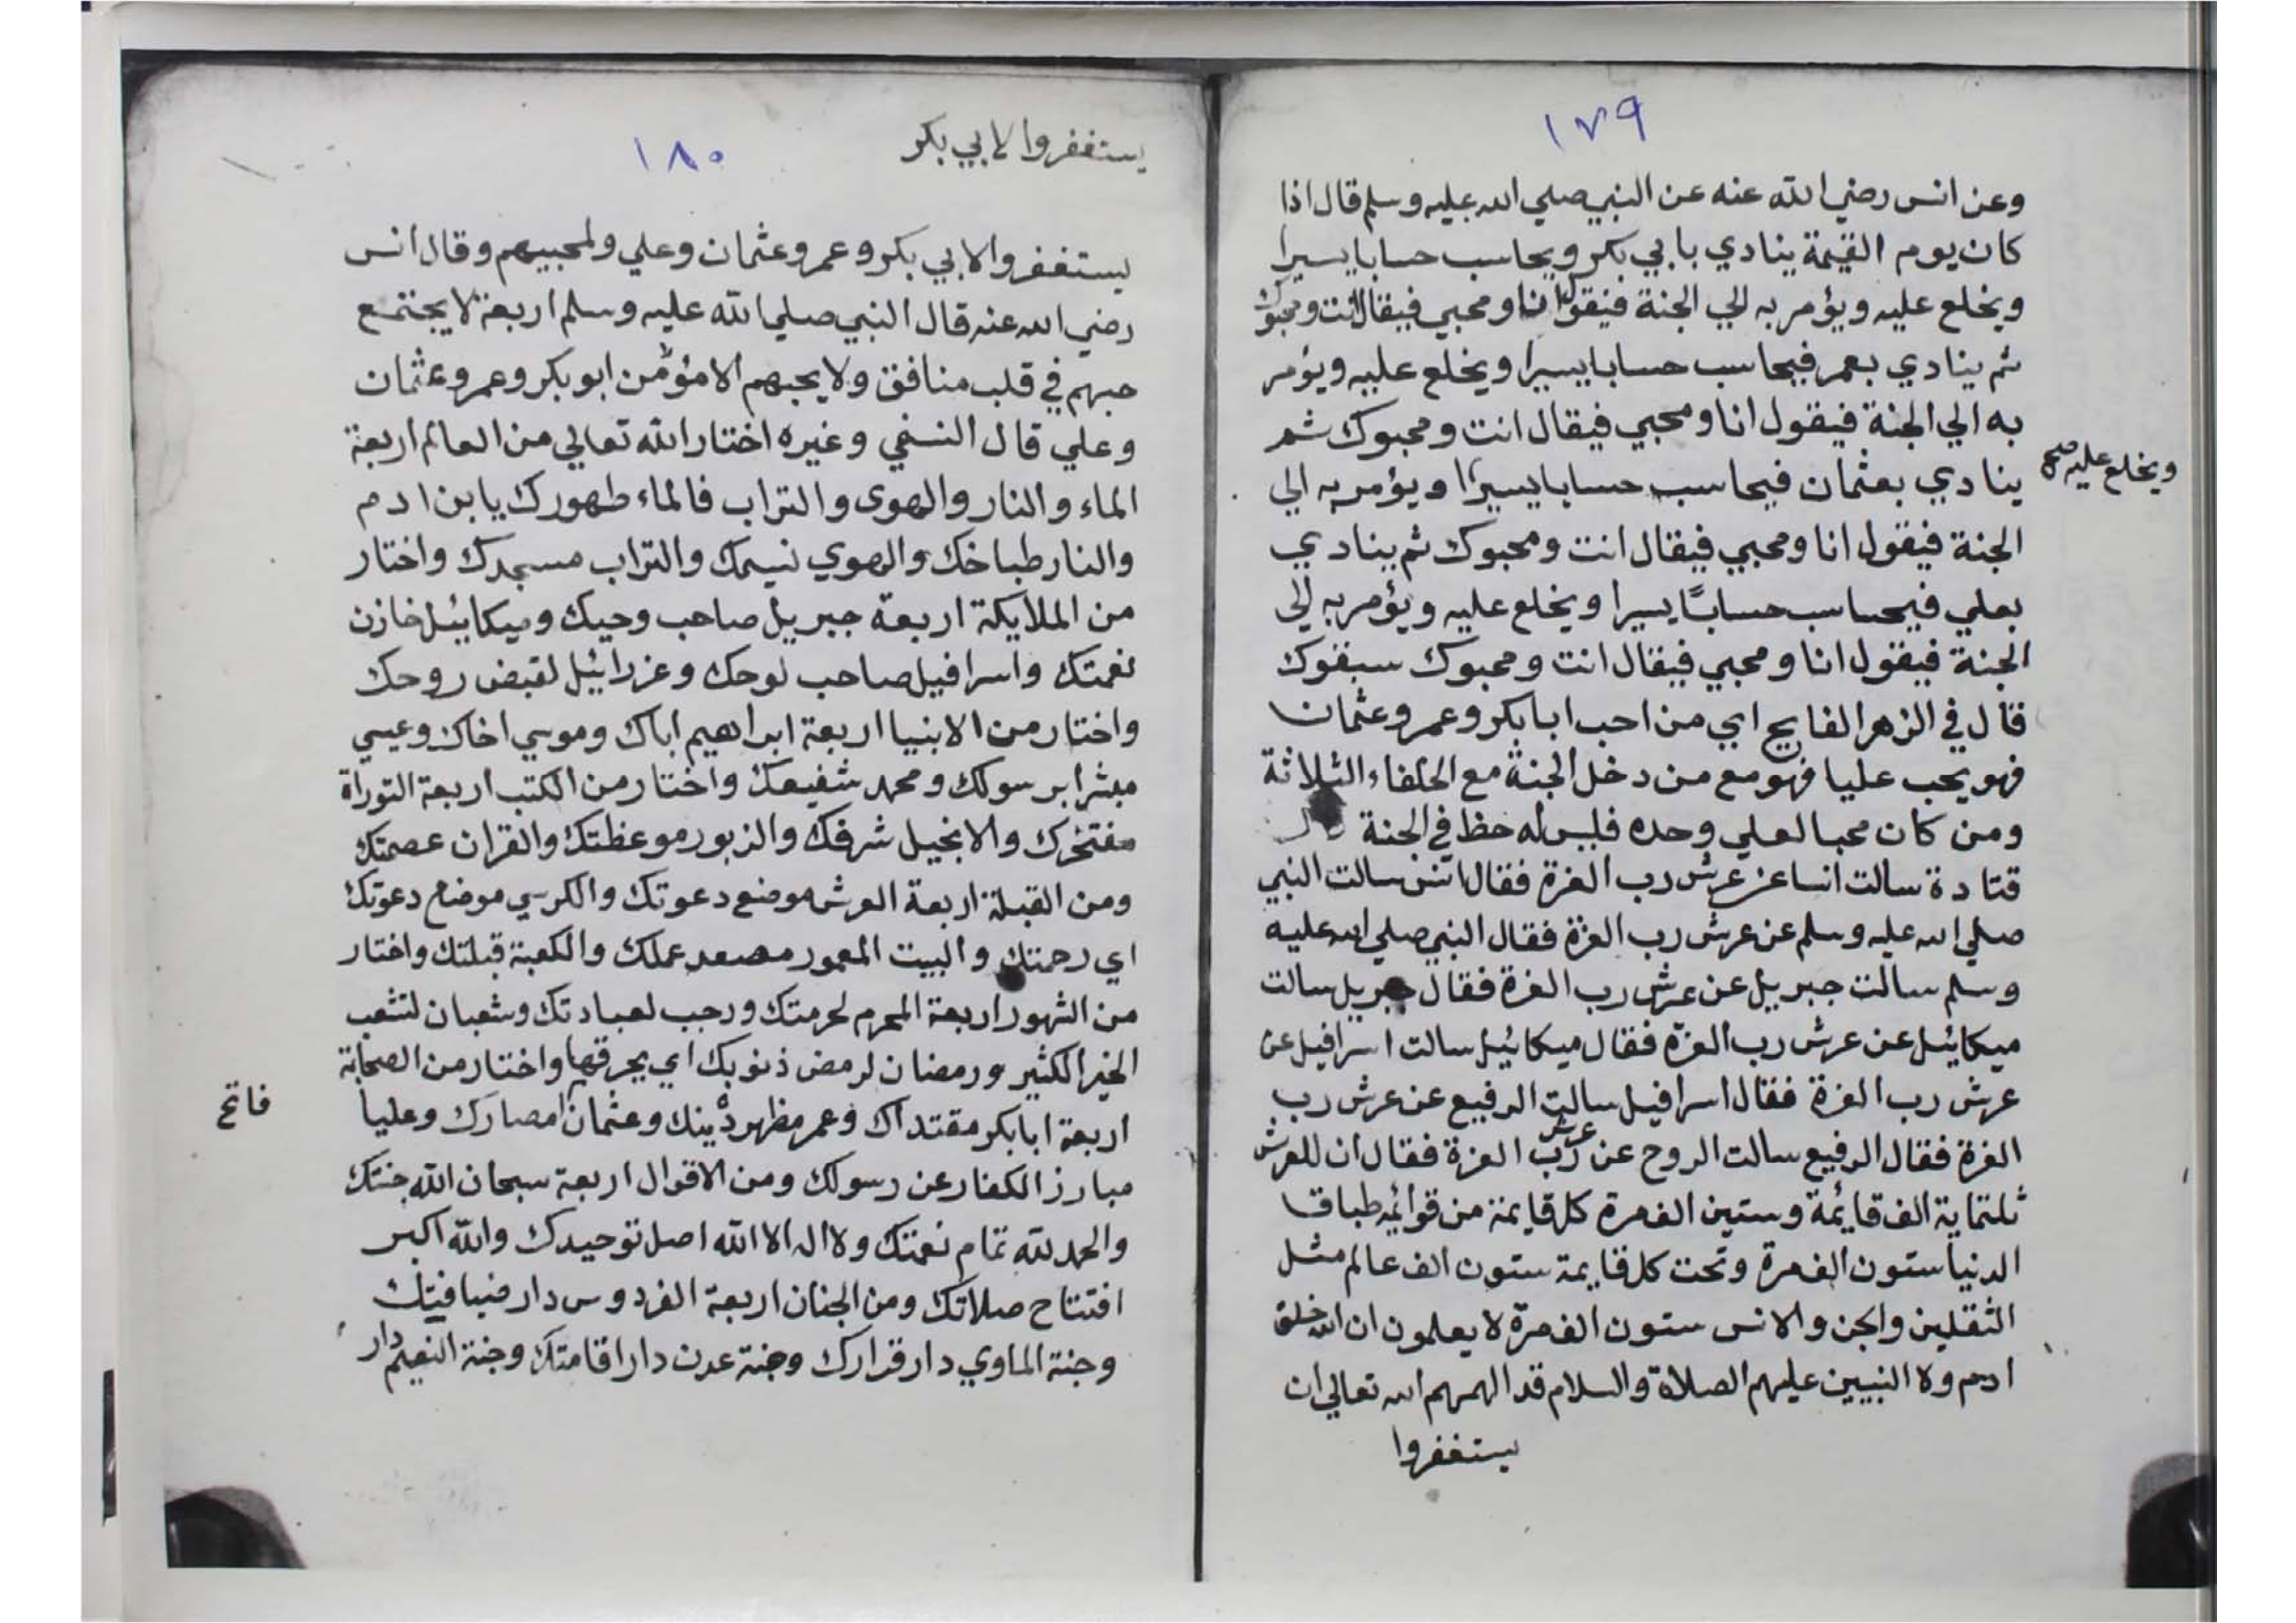 ١٧٩
وعن انس رضي الله عنه عن النبي صلي الله عليه وسلم قال اذا
كان يوم القيمة ينادي بابي بكر ويحاسب حسابا يسيرا
ويخلع عليه ويؤمر به الي الجنة فيقول انا ومحبي فيقال انت ومحبوك
ثم ينادي بعمر فيحاسب حسابا يسيرا ويخلع عليه ويؤمر
به الي الجنة فيقول انا ومحبي فيقال انت ومحبوك ثم
ينادي بعثمان فيحاسب حسابا يسيرا ويؤمر به الي
ويخلع عليه صح
الجنة فيقول انا ومحبي فيقال انت ومحبوك ثم ينادي
بعلي فيحاسب حسابًا يسيرا ويخلع عليه ويؤمر به الي
الجنة فيقول انا ومحبي فيقال انت ومحبوك سبقوك
قال في الزهر الفايح اي من احب ابا بكر وعمر وعثمان
فهو يحب عليا فهو مع من دخل الجنة مع الخلفاء الثلاثة
ومن كان محبا لعلي وحده فليس له حظ في الجنة قال
قتادة سالت انسا عن عرش رب العزة فقال انس سالت النبي
صلي الله عليه وسلم عن عرش رب العزة فقال النبي صلي الله عليه
وسلم سالت جبريل عن عرش رب العزة فقال جبريل سالت
ميكائيل عن عرش رب العزة فقال ميكائيل سالت اسرافيل عن
عرش رب العزة فقال اسرافيل سالت الرفيع عن عرش رب
العزة فقال الرفيع سالت الروح عن عرش رب العزة فقال ان للعرش
ثلثماية الف قائمة وستين الف مرة كل قايمة من قوائمه طباق
الدنيا ستون الف مرة وتحت كل قايمة ستون الف عالم مثل
الثقلين والجن والانس ستون الف مرة لا يعلمون ان الله خلق
ادم ولا النبيين عليهم الصلاة والسلام قد الهمهم الله تعالي ان
يستغفروا
يستغفروا لابي بكر
١٨٠
يستغفروا لابي بكر وعمر وعثمان وعلي ولمحبيهم وقال انس
رضي الله عنه قال النبي صلي الله عليه وسلم اربعة لا يجتمع
حبهم في قلب منافق ولا يحبهم الا مؤمن ابو بكر وعمر وعثمان
وعلي قال النسفي وغيره اختار الله تعالي من العالم اربعة
الماء والنار والهوى والتراب فالماء طهورك يا بن ادم
والنار طباخك والهوي نسيمك والتراب مسجدك واختار
من الملايكة اربعة جبريل صاحب وحيك وميكائيل خازن
نعمتك واسرافيل صاحب لوحك وعزرائيل لقبض روحك
واختار من الانبيا اربعة ابراهيم اباك وموسي اخاك وعيسي
مبشرا برسولك ومحمد شفيعك واختار من الكتب اربعة التوراة
مفتخرك والانجيل شرفك والزبور موعظتك والقران عصمتك
ومن القبلة اربعة العرش موضع دعوتك والكرسي موضع دعوتك
اي رحمتك والبيت المعمور مصعد عملك والكعبة قبلتك واختار
من الشهور اربعة المحرم لحرمتك ورجب لعبادتك وشعبان لتشعب
الخير الكثير ورمضان لرمض ذنوبك اي يحرقها واختار من الصحابة
اربعة ابا بكر مقتداك وعمر مظهر دينك وعثمان امصارك وعليا
فاتح
مبارز الكفار عن رسولك ومن الاقوال اربعة سبحان الله جنتك
والحمد لله تمام نعمتك ولا اله الا الله اصل توحيدك والله اكبر
افتتاح صلاتك ومن الجنان اربعة الفردوس دار ضيافتك
وجنة الماوي دار قرارك وجنة عدن دار اقامتك وجنة النعيم دار